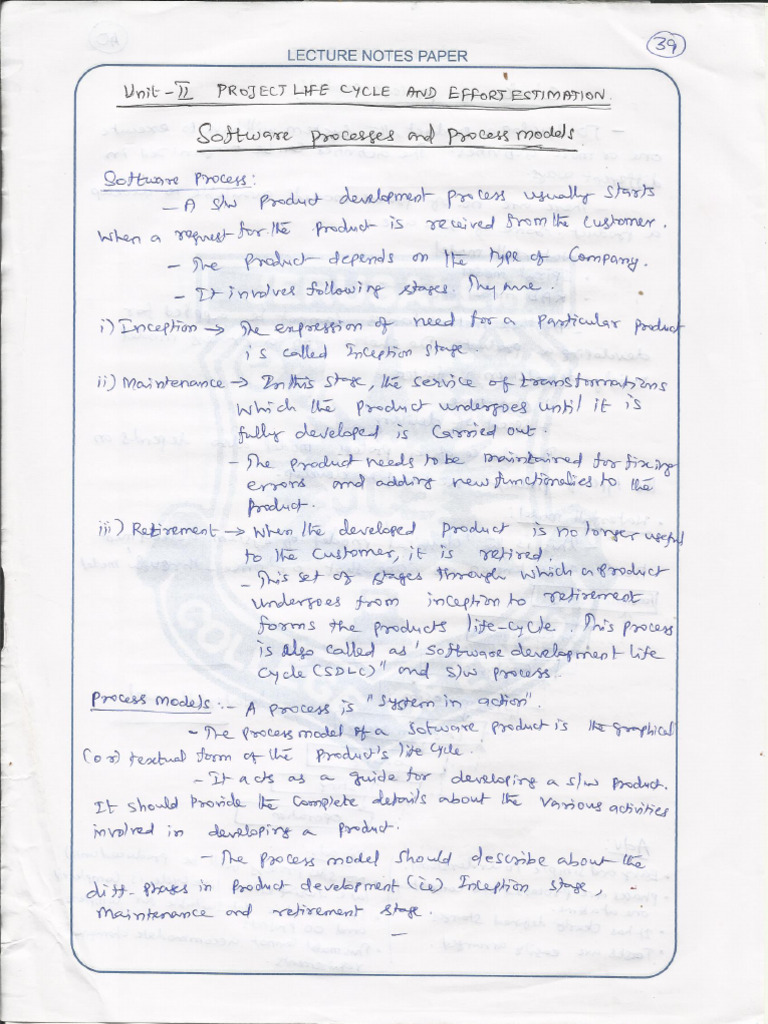 39
LECTURE NOTES PAPER
Unit-II PROJECT LIFE CYCLE AND EFFORT ESTIMATION.
Software processes and process models
Software Process:
- A s/w product development process usually starts
when a request for the product is received from the customer.
- The product depends on the type of company.
- It involves following stages. They are.
i) Inception → The expression of need for a particular product
is called Inception stage.
ii) Maintenance → In this stage, the service of transformations
which the product undergoes until it is
fully developed is carried out.
- The product needs to be maintained for fixing
errors and adding new functionalies to the
product.
iii) Retirement → When the developed product is no longer useful
to the customer, it is retired.
- This set of stages through which a product
undergoes from inception to retirement
forms the products life-cycle. This process
is also called as "software development life
cycle (SDLC)" and s/w process.
Process models :- A process is "system in action".
- The process model of a sotware product is the graphical
(or) textual form of the product's life cycle.
- It acts as a guide for developing a s/w product.
It should provide the complete details about the various activities
involved in developing a product.
- The process model should describe about the
diff- phases in product development (ie) Inception stage,
maintenance and retirement stage.